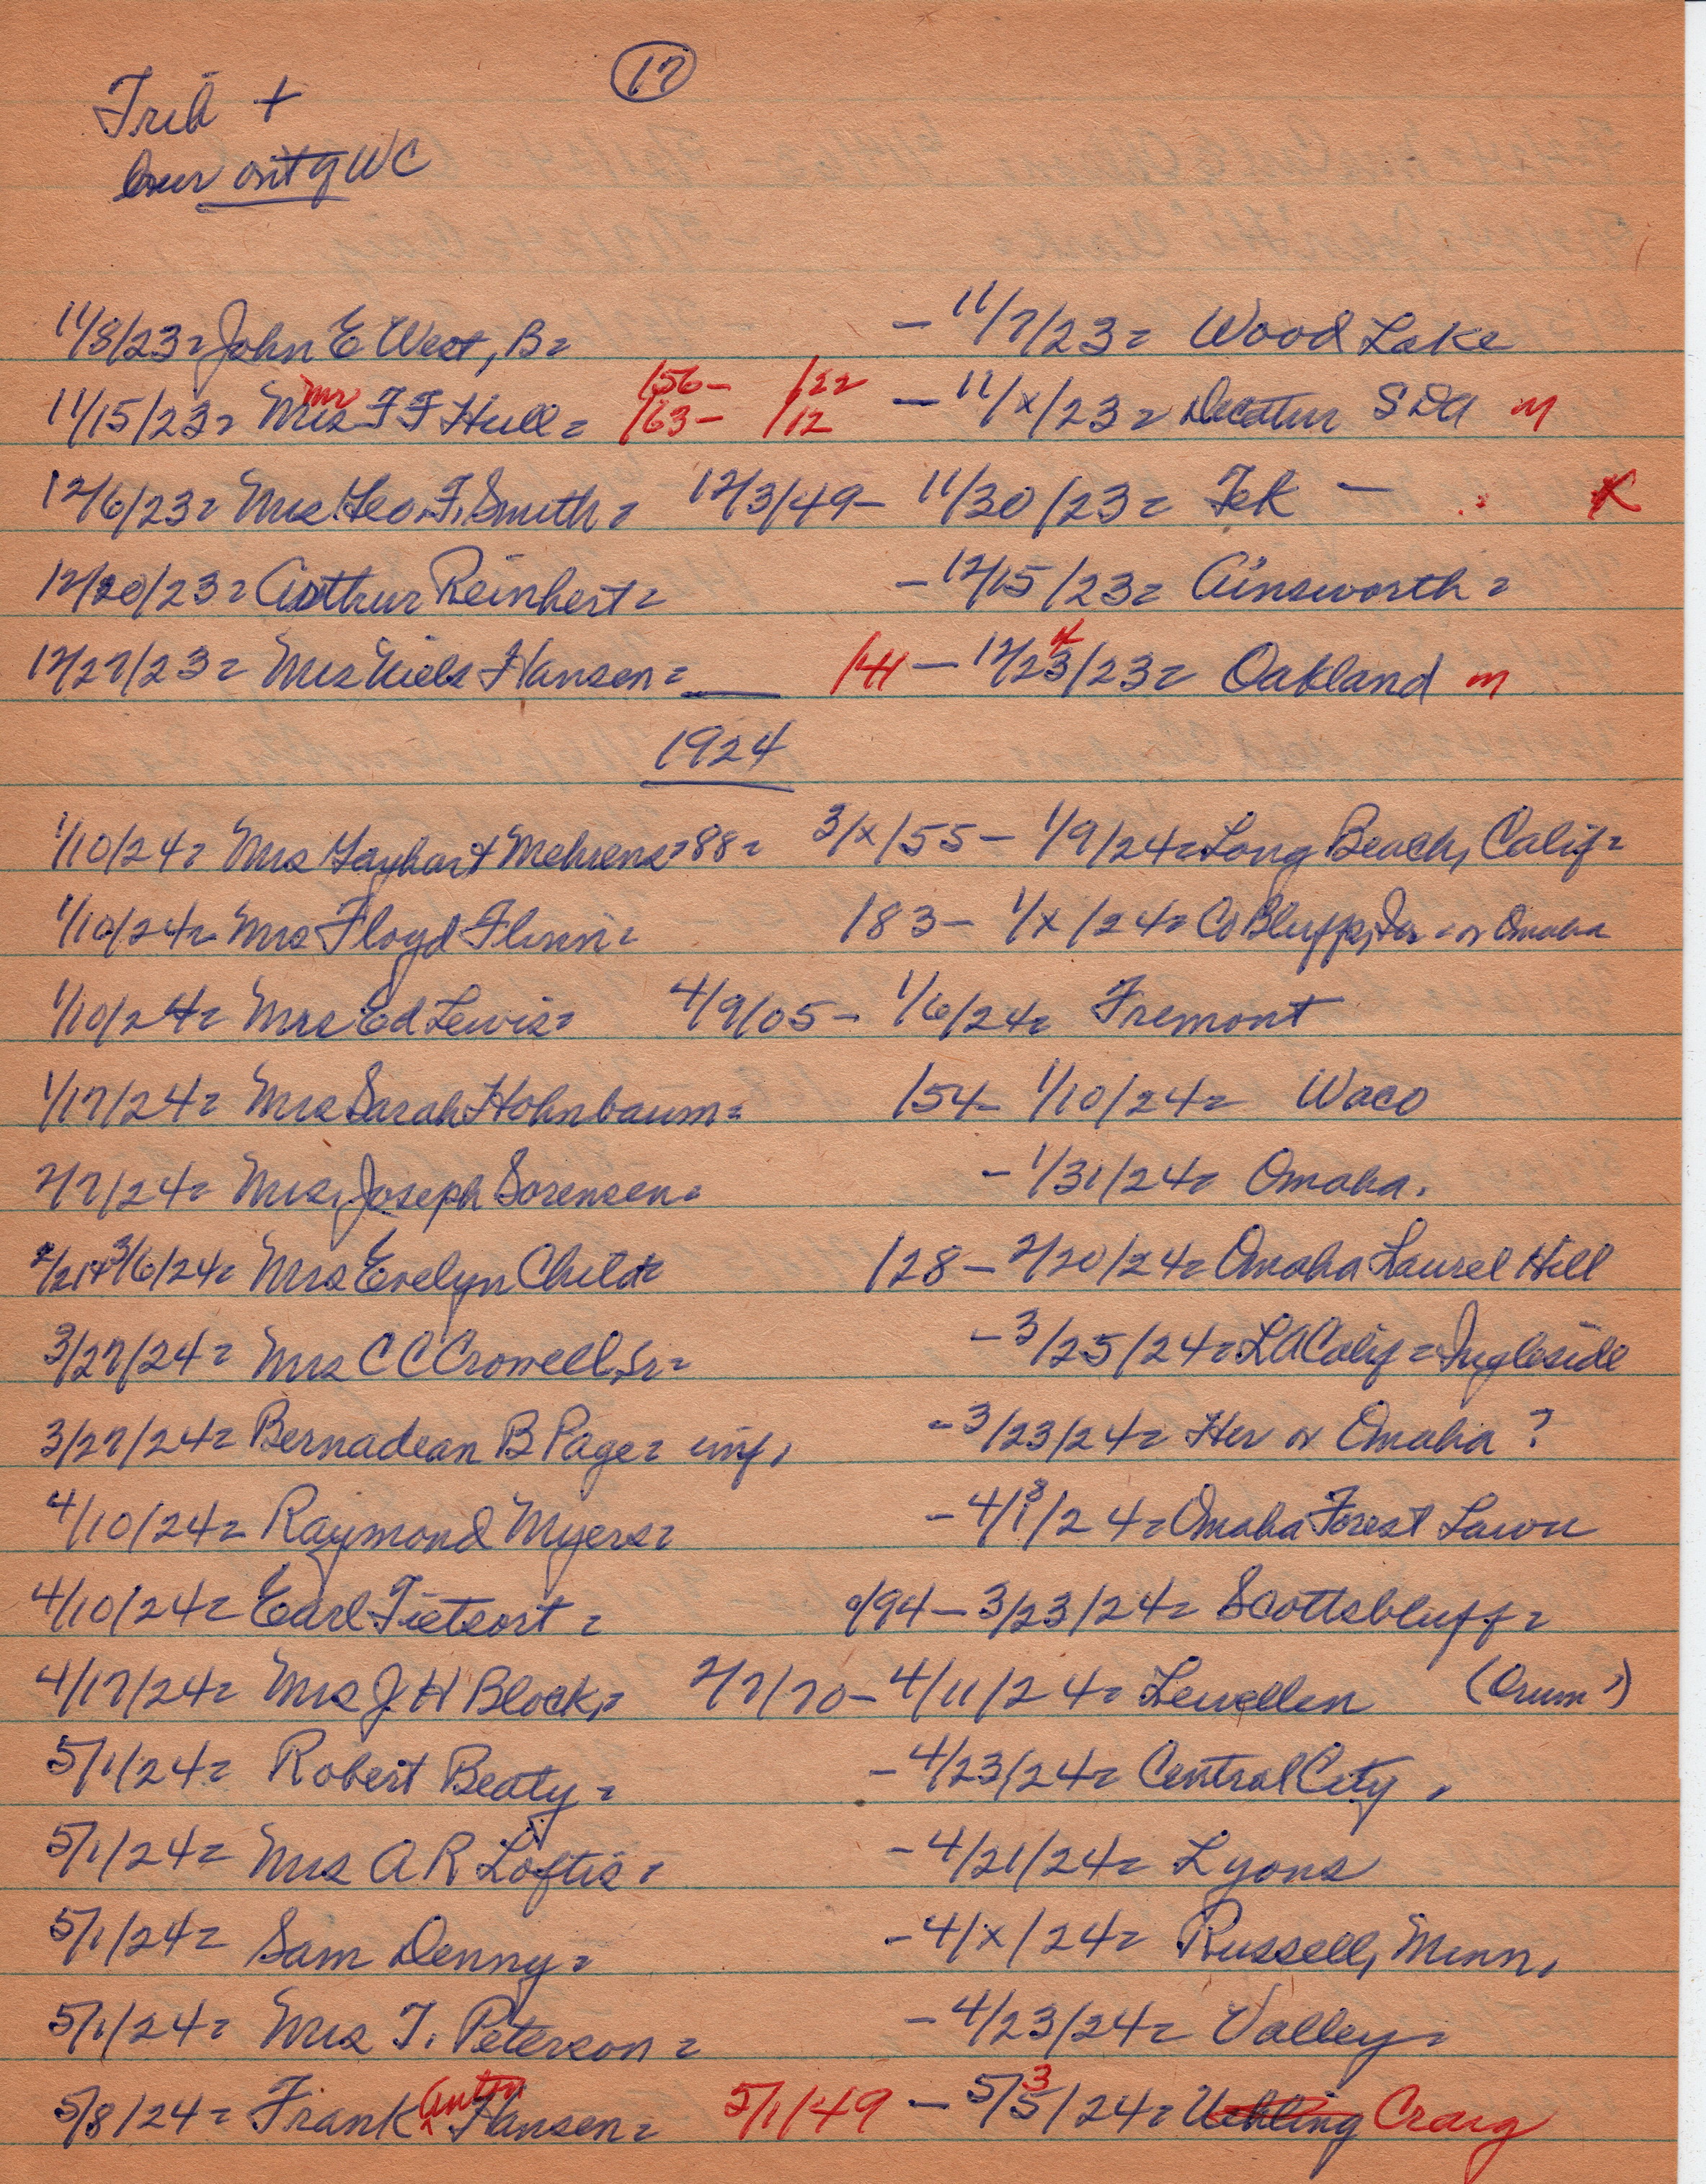 17
Trib +
bur out of WC
11/8/23= John E West, B= - 11/7/23= Wood Lake
mr /56- /22
11/15/23= Mrs F F Hull= /63- /12 - 11/x/23= Decatur SDA m
12/6/23= Mrs Geo. F. Smith= 12/3/49- 11/30/23= Tek - K
12/20/23= Arthur Reinhert= - 12/15/23= Ainsworth=
12/27/23= Mrs Niels Hansen= /41 - 12/23/23= Oakland m
1924
1/10/24= Mrs Gayhart Mehrens=88= 3/x/55- 1/9/24= Long Beach, Calif=
1/10/24= Mrs Floyd Flinn= 183- 1/x/24= Co Bluffs, Ia = or Omaha
1/10/24= Mrs Ed Lewis= 4/9/05- 1/6/24= Fremont
1/17/24= Mrs Sarah Hohnbaum= /54- 1/10/24= Waco
2/7/24= Mrs. Joseph Sorensen= - 1/31/24= Omaha.
2/21+3/6/24= Mrs Evelyn Child= /28- 2/20/24= Omaha Laurel Hill
3/27/24= Mrs C C Crowell, Sr= - 3/25/24= LA Calif= Ingleside
3/27/24= Bernadean B Page= inf, - 3/23/24= Her or Omaha ?
4/10/24= Raymond Myers= - 4/8/24= Omaha Forest Lawn
4/10/24= Earl Tietsort= 94- 3/23/24= Scottsbluff=
4/17/24= Mrs J H Block, 2/7/70- 4/11/24= Lewellen (Orum?)
5/1/24= Robert Beaty= - 4/23/24= Central City,
5/1/24= Mrs A R Loftis= - 4/21/24= Lyons
5/1/24= Sam Denny= - 4/x/24= Russell, Minn,
5/1/24= Mrs T. Peterson= - 4/23/24= Valley=
5/8/24= Frank Anton Hansen= 5/1/49 - 5/3/24= Uehling Craig